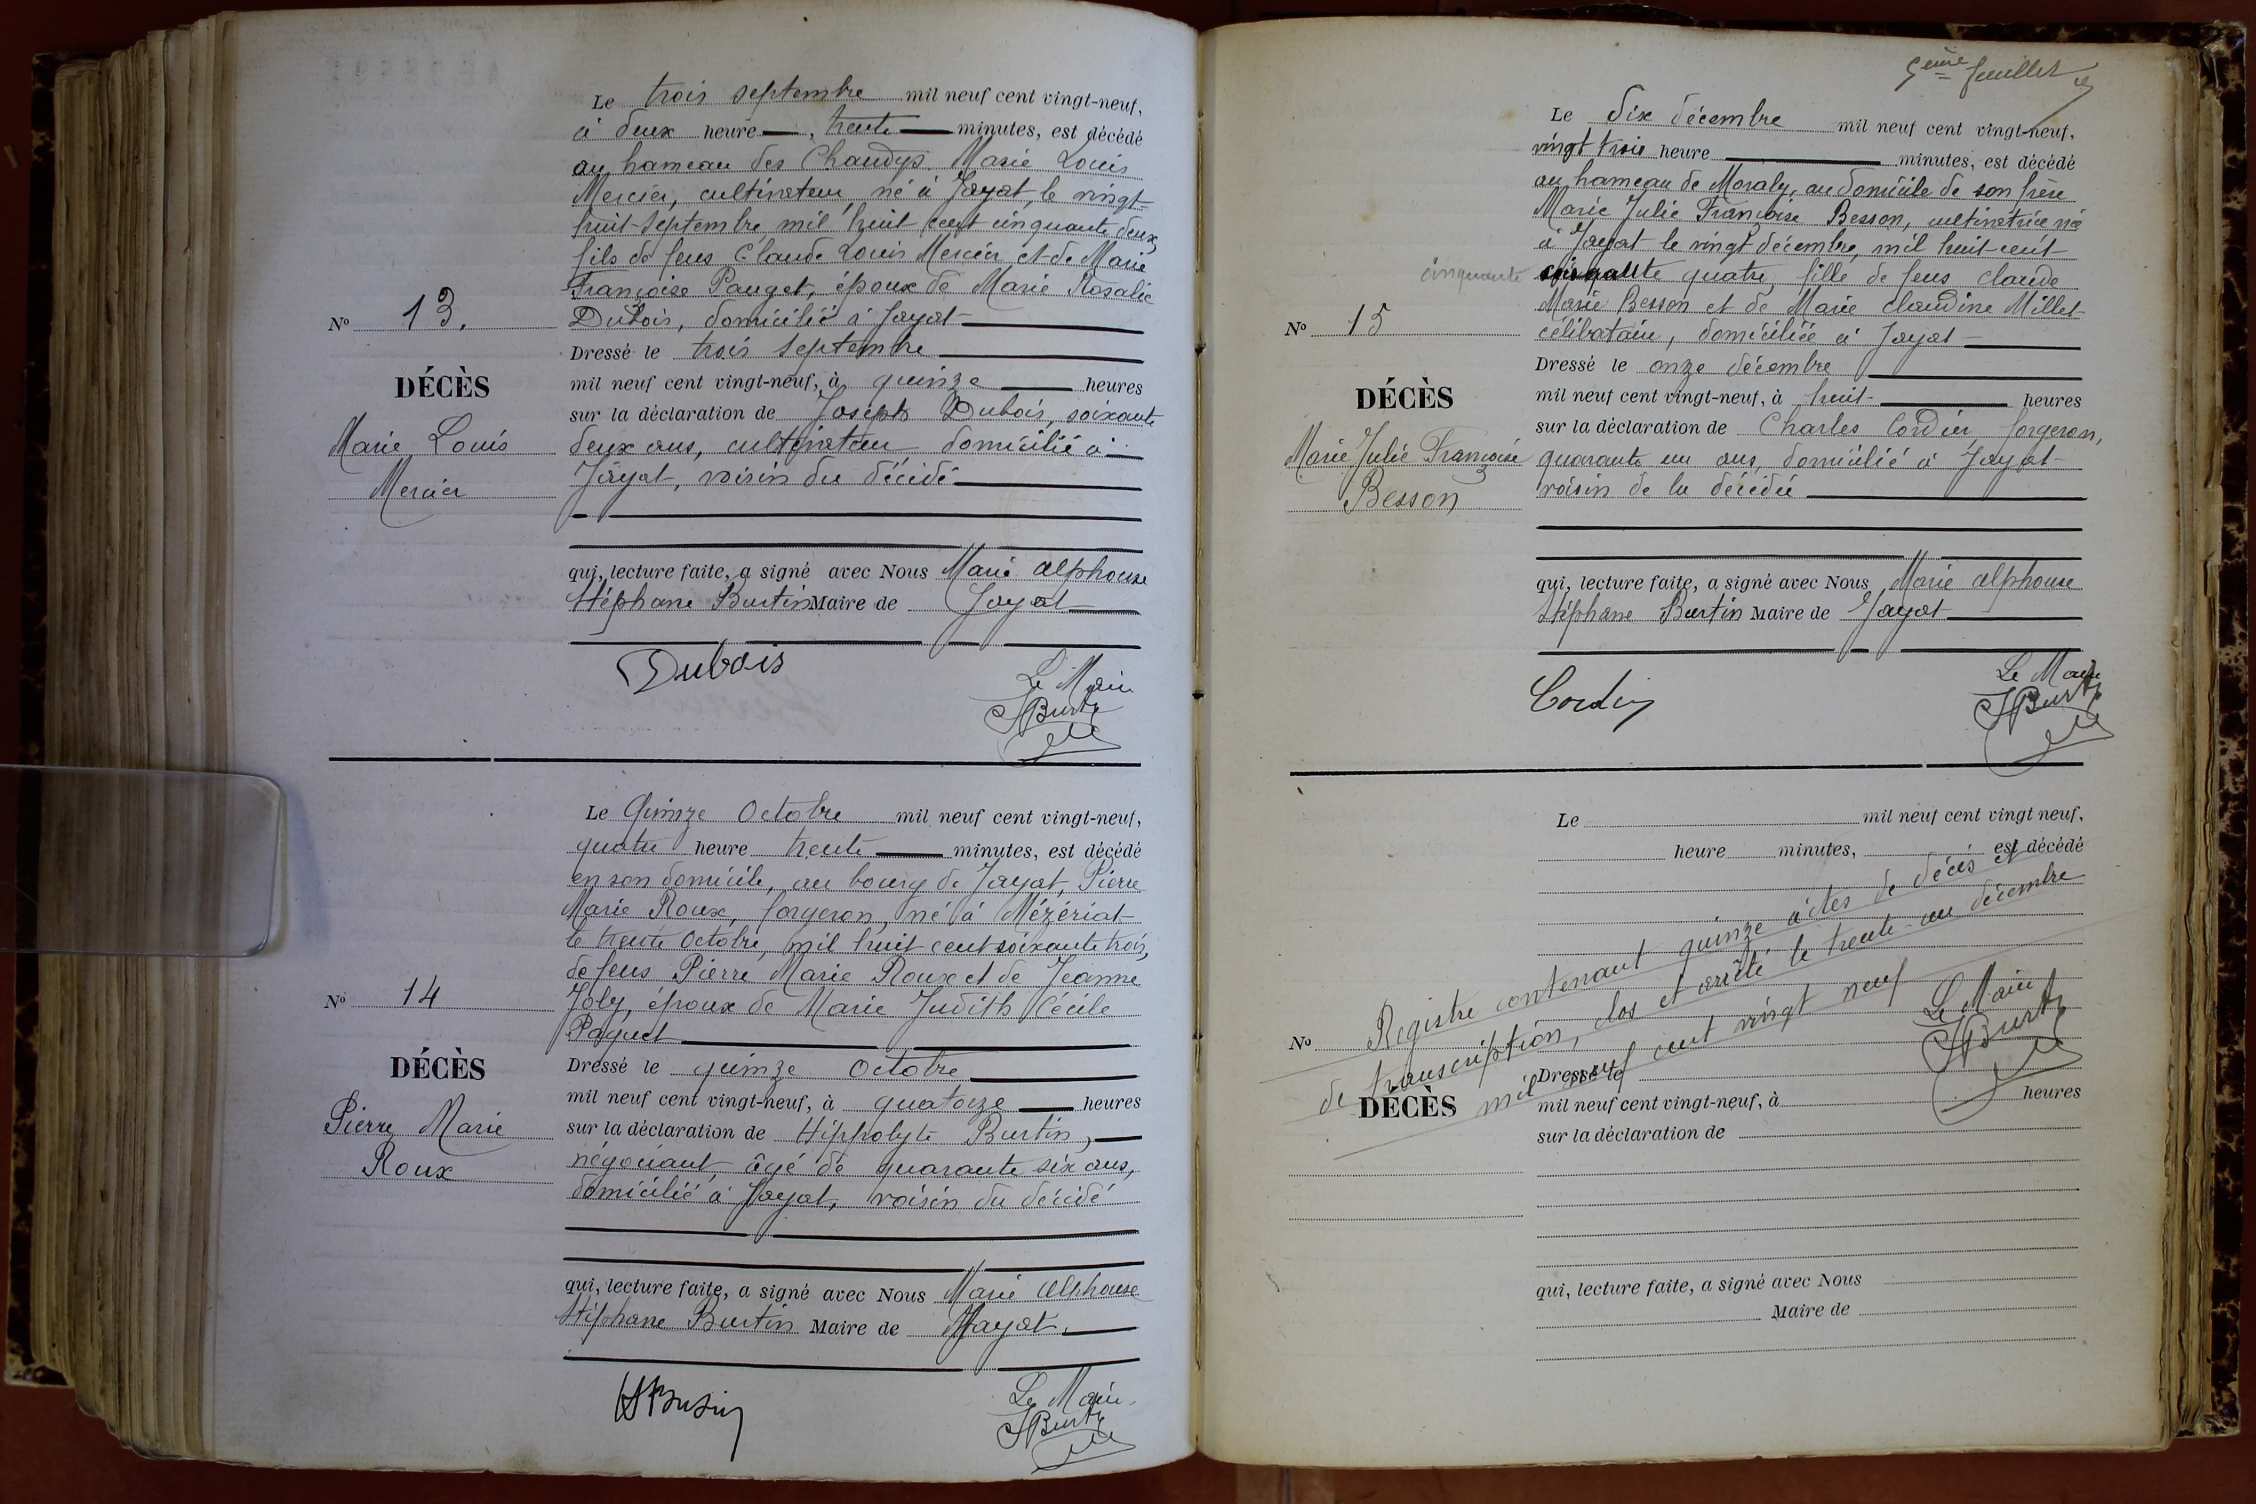 Le trois septembre mil neuf cent vingt-neuf,
à deux heure , trente minutes, est décédé
au hameau des Chaudys Marie Louis
Mercier, cultivateur, né à Jayat, le vingt-
huit septembre mil huit cent cinquante deux,
fils de feus Claude Louis Mercier et de Marie
Françoise Pauget, époux de Marie Rosalie
Dubois, domicilié à Jayat
No 13.
DÉCÈS
Marie Louis
Mercier
Dressé le trois septembre
mil neuf cent vingt-neuf, à quinze heures
sur la déclaration de Joseph Dubois, soixante
deux ans, cultivateur domicilié à
Jayat, voisin du décédé
qui, lecture faite, a signé avec Nous Marie Alphonse
Stéphane Burtin Maire de Jayat
Dubois
Le Maire
SBurtin
Le Quinze Octobre mil neuf cent vingt-neuf,
quatre heure trente minutes, est décédé
en son domicile, au bourg de Jayat, Pierre
Marie Roux, forgeron, né à Mézériat
le trente Octobre, mil huit cent soixante trois,
de feus Pierre Marie Roux et de Jeanne
Joly, époux de Marie Judith Cécile
Paquet
No 14
DÉCÈS
Pierre Marie
Roux
Dressé le quinze Octobre
mil neuf cent vingt-neuf, à quatorze heures
sur la déclaration de Hippolyte Burtin,
négociant, âgé de quarante six ans,
domicilié à Jayat, voisin du décédé
qui, lecture faite, a signé avec Nous Marie Alphonse
Stéphane Burtin Maire de Jayat.
HBurtin
Le Maire
SBurtin
5eme feuillet
Le dix décembre mil neuf cent vingt-neuf,
vingt trois heure minutes, est décédé
au hameau de Moraly, au domicile de son frère
Marie Julie Françoise Besson, cultivatrice née
à Jayat le vingt décembre, mil huit cent
cinquante quatre, fille de feus claude
cinquante
Marie Besson et de Marie claudine Millet
célibataire, domiciliée à Jayat
No 15
DÉCÈS
Marie Julie Françoise
Besson
Dressé le onze décembre
mil neuf cent vingt-neuf, à huit heures
sur la déclaration de Charles Cordier forgeron,
quarante un ans, domicilié à Jayat
voisin de la décédée
qui, lecture faite, a signé avec Nous Marie alphonse
Stéphane Burtin Maire de Jayat
Cordier
Le Maire
SBurtin
Le mil neuf cent vingt neuf,
heure minutes, est décédé
Registre contenant quinze actes de décès et
de transcription, clos et arrêté le trente-un décembre
mil neuf cent vingt neuf
Le Maire
SBurtin
No
DÉCÈS
Dressé le
mil neuf cent vingt-neuf, à heures
sur la déclaration de
qui, lecture faite, a signé avec Nous
Maire de